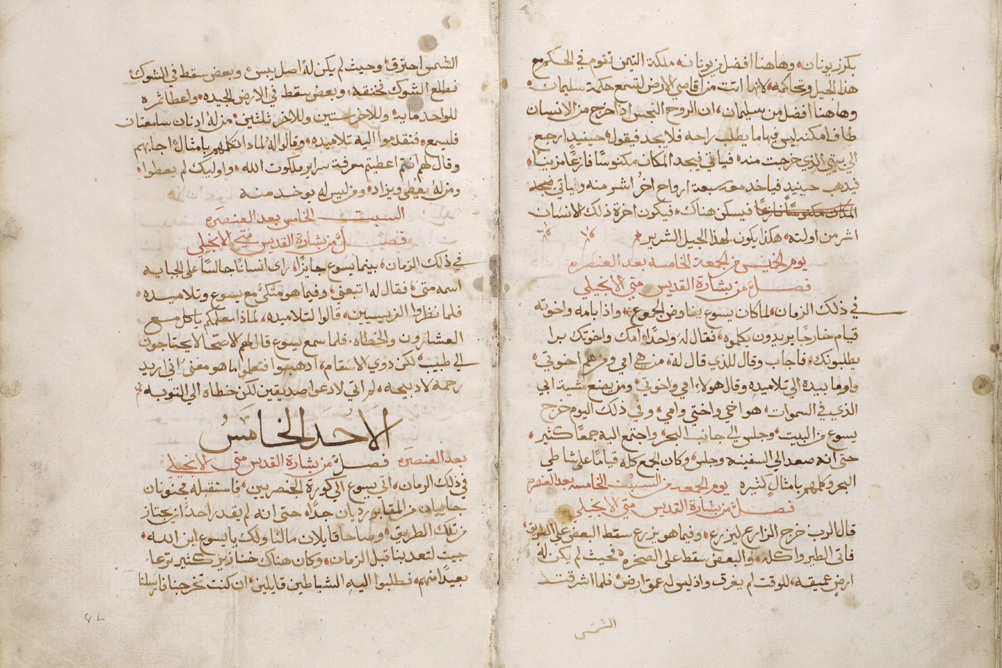 بكرز يونان، وهاهنا افضل من يونان، ملكة التيمن تقوم في الحكم مع
هذا الجيل وتحاكمه، لانها اتت من اقاصي الارض لتسمع حكمة سليمان،
وهاهنا افضل من سليمان، ان الروح النجس اذا خرج من الانسان
طاف امكنة ليس فيها ما يطلب راحه فلا يجد فيقول، حينيد ارجع
الى بيتي الذي خرجت منه، فياتي فيجد المكان مكنوسًا فارغًا مزينًا،
فيذهب حينيد فياخذ معه سبعة ارواح اخر اشر منه وياتي فيجد
المكان مكنوسًا فارغًا فيسكن هناك، فيكون اخرة ذلك الانسان
اشر من اولته، هكذا يكون لهذا الجيل الشرير،
يوم الخميس من الجمعة الخامسه بعد العنصره
فصل من بشارة القديس متى الانجيلي
في ذلك الزمان، لما كان يسوع يفاوض الجموع، واذا بامه واخوته
قيام خارجًا يريدون يكلموه، فقال له وحدًا، امك واخوتك برا
يطلبونك، فاجاب وقال للذي قال له، من هي امي ومن هم اخوتي،
واوما بيده الى تلاميذه وقال هولاء امي واخوتي، ومن يصنع مشية ابي
الذي في السموات، هو اخي واختي وامي، وفي ذلك اليوم خرج
يسوع من البيت، وجلس الى جانب البحر، واجتمع اليه جمعًا كثير،
حتى انه صعد الى السفينه وجلس، وكان الجمع كله قيامًا على شاطي
البحر وكلمهم بامثال كثيره يوم الجمعه من السبت الخامسه بعد العنصره
فصل من بشارة القديس متى الانجيلي
قال الرب خرج الزارع ليزرع، وفيما هو يزرع سقط البعض على الطريق
فاتى الطير واكله، والبعض سقط على الصخره، فحيث لم يكن له
ارض عميقه، للوقت لم يغرق واذ ليس له عمق ارض، فلما اشرقت
الشمس
الشمس احترق، وحيث لم يكن له اصل يبس، وبعض سقط في الشوك
فطلع الشوك فخنقه، وبعض سقط في الارض الجيده، واعطا ثمره
للواحد مايه، وللاخر ستين وللاخر ثلثين، من له اذنان سامعتان
فليسمع، فتقدموا اليه تلاميذه، وقالوا له لماذا تكلمهم بامثال، اجابهم
وقال لهم، انتم اعطيتم معرفة سراير ملكوت الله، واوليك لم يعطوا،
ومن له يعطى ويزاد، ومن ليس له يوخد منه
السبت الخامس بعد العنصره
فصل من بشارة القديس متى الانجيلي
في ذلك الزمان، بينما يسوع جايزًا، راى انسانًا جالسًا على الجبايه
اسمه متى، فقال له اتبعني، وفيما هو متكي مع يسوع وتلاميذه،
فلما نظروا الفريسيين، قالوا لتلاميذه، لماذا معلمكم ياكل مع
العشارون والخطاه، فلما سمع يسوع قال لهم الاصحا لا يحتاجون
الى طبيب، لكن ذوي الاسقام، اذهبوا فتعلموا ما هو معنى اني اريد
رحمة لا ذبيحه، لم اتي لادعوا صديقين لكن خطاه الى التوبه،
الاحد الخامس
بعد العنصره فصل من بشارة القديس متى الانجيلي
في ذلك الزمان، اتى يسوع الى كورة الجرجسيين، فاستقبله مجنونان
خارجان من المقابر رديان جدًا، حتى انه لم يقدر احدًا يجتاز
من تلك الطريق، وصاحا قايلان، ما لنا ولك يا يسوع ابن الله،
جيت لتعذبنا قبل الزمان، وكان هناك خنازير كثير ترعا
بعيدًا منهم، فطلبوا اليه الشياطين قايلين، ان كنت تخرجنا فارسلنا